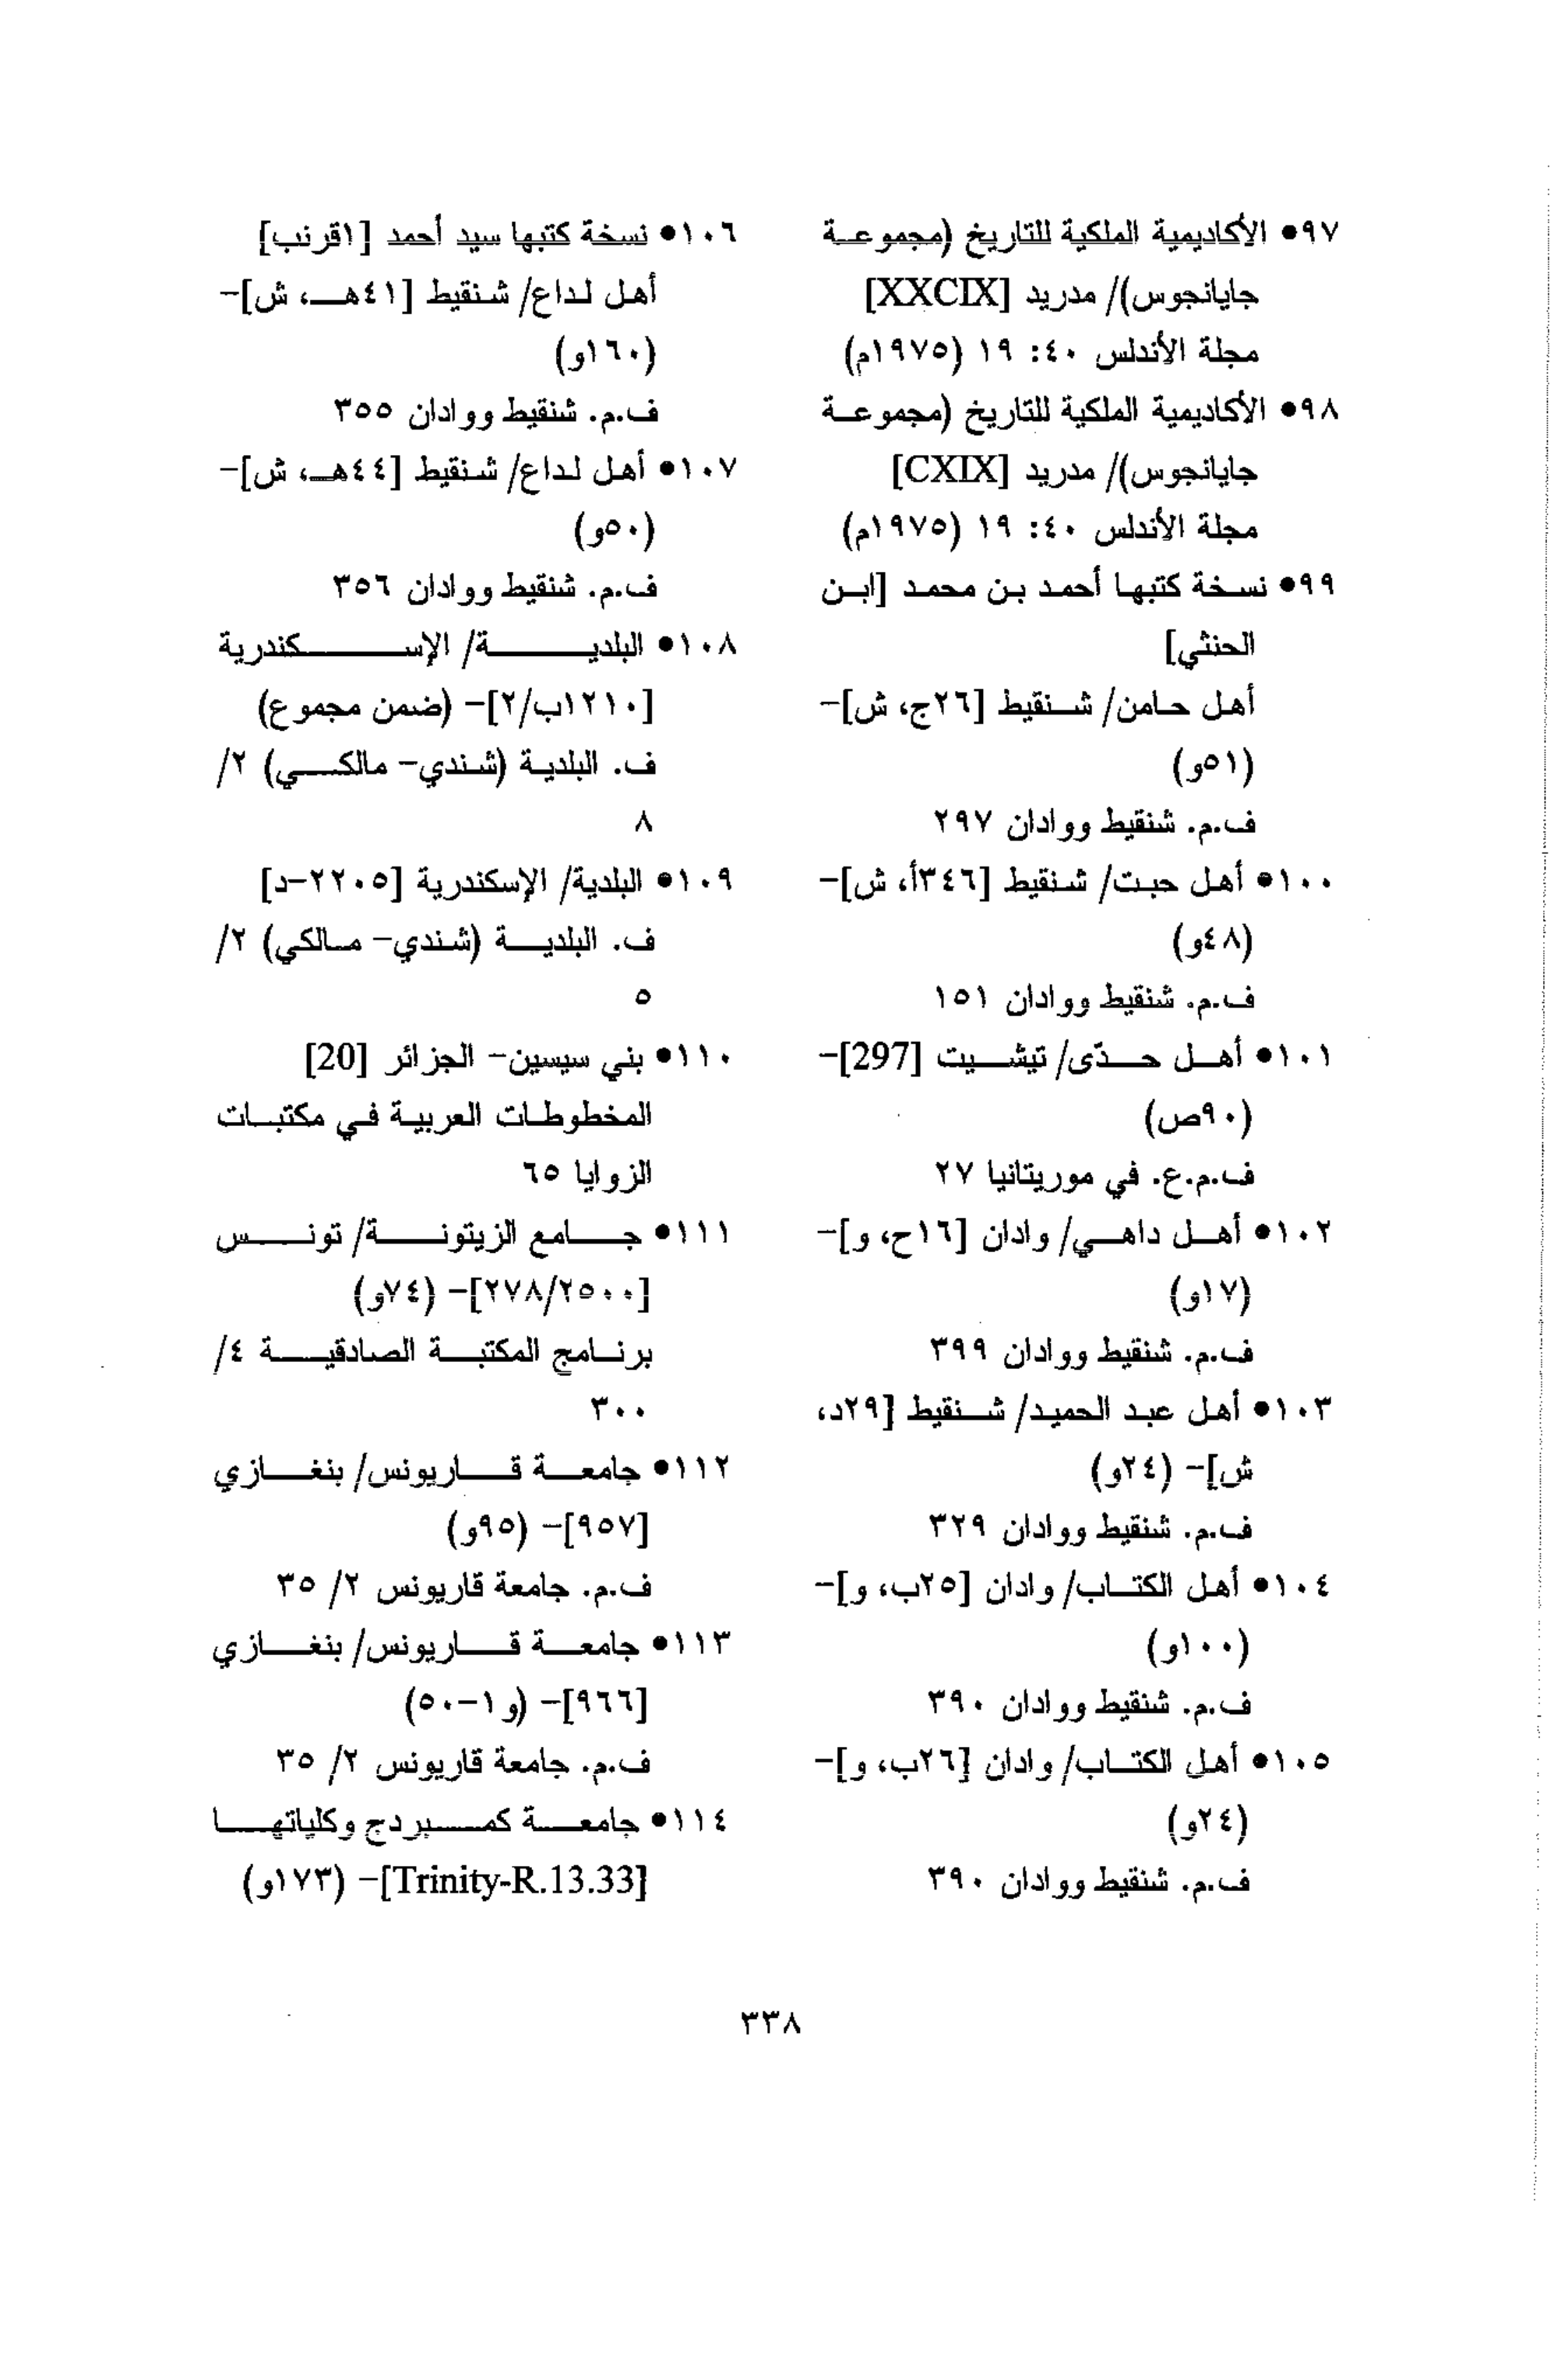 ٩٧• الأكاديمية الملكية للتاريخ (مجموعة
جايانجوس)/ مدريد [XXCIX]
مجلة الأندلس ٤٠: ١٩ (١٩٧٥م)
٩٨• الأكاديمية الملكية للتاريخ (مجموعة
جايانجوس)/ مدريد [CXIX]
مجلة الأندلس ٤٠: ١٩ (١٩٧٥م)
٩٩• نسخة كتبها أحمد بن محمد [ابن
الحنثي]
أهل حامن/ شنقيط [٢٦ج، ش]-
(٥١و)
ف.م. شنقيط ووادان ٢٩٧
١٠٠• أهل حبت/ شنقيط [٣٤٦أ، ش]-
(٤٨و)
ف.م. شنقيط ووادان ١٥١
١٠١• أهل حدّى/ تيشيت [297]-
(٩٠ص)
ف.م.ع. في موريتانيا ٢٧
١٠٢• أهل داهي/ وادان [١٦ح، و]-
(١٧و)
ف.م. شنقيط ووادان ٣٩٩
١٠٣• أهل عبد الحميد/ شنقيط [٢٩د،
ش]- (٢٤و)
ف.م. شنقيط ووادان ٣٢٩
١٠٤• أهل الكتاب/ وادان [٢٥ب، و]-
(١٠٠و)
ف.م. شنقيط ووادان ٣٩٠
١٠٥• أهل الكتاب/ وادان [٢٦ب، و]-
(٢٤و)
ف.م. شنقيط ووادان ٣٩٠
١٠٦• نسخة كتبها سيد أحمد [١قرنب]
أهل لداع/ شنقيط [٤١هـ، ش]-
(١٦٠و)
ف.م. شنقيط ووادان ٣٥٥
١٠٧• أهل لداع/ شنقيط [٤٤هـ، ش]-
(٥٠و)
ف.م. شنقيط ووادان ٣٥٦
١٠٨• البلدية/ الإسكندرية
[١٢١٠ب/٢]- (ضمن مجموع)
ف. البلدية (شندي- مالكي) ٢/
٨
١٠٩• البلدية/ الإسكندرية [٢٢٠٥-د]
ف. البلدية (شندي- مالكي) ٢/
٥
١١٠• بني سيسين- الجزائر [20]
المخطوطات العربية في مكتبات
الزوايا ٦٥
١١١• جامع الزيتونة/ تونس
[٢٧٨/٢٥٠٠]- (٧٤و)
برنامج المكتبة الصادقية ٤/
٣٠٠
١١٢• جامعة قاريونس/ بنغازي
[٩٥٧]- (٩٥و)
ف.م. جامعة قاريونس ٢/ ٣٥
١١٣• جامعة قاريونس/ بنغازي
[٩٦٦]- (و١-٥٠)
ف.م. جامعة قاريونس ٢/ ٣٥
١١٤• جامعة كمبردج وكلياتها
[Trinity-R.13.33]- (١٧٣و)
٣٣٨